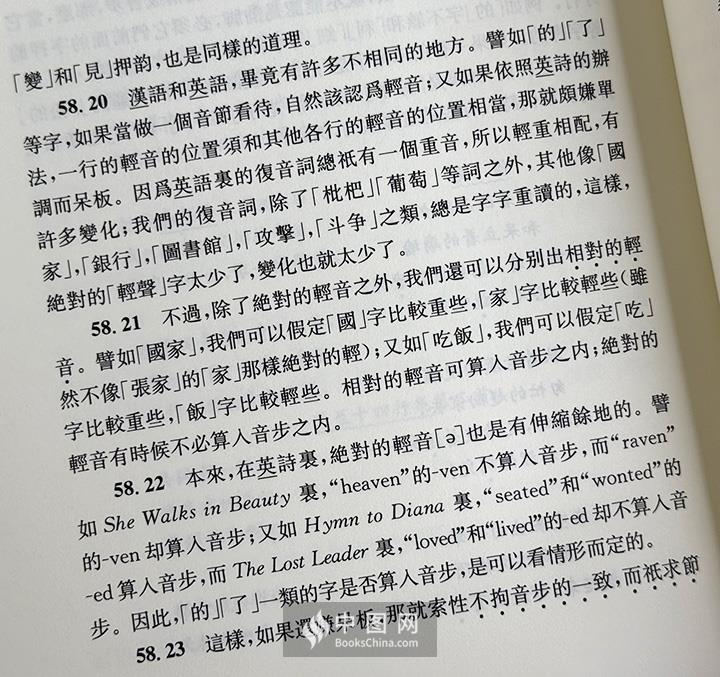 「變」和「見」押韵,也是同樣的道理。
58.20 漢語和英語,畢竟有許多不相同的地方。譬如「的」「了」
等字,如果當做一個音節看待,自然該認爲輕音;又如果依照英詩的辦
法,一行的輕音的位置須和其他各行的輕音的位置相當,那就頗嫌單
調而呆板。因爲英語裏的復音詞總祇有一個重音,所以輕重相配,有
許多變化;我們的復音詞,除了「枇杷」「葡萄」等詞之外,其他像「國
家」,「銀行」,「圖書館」,「攻擊」,「斗争」之類,總是字字重讀的,這樣,
絶對的「輕聲」字太少了,變化也就太少了。
58.21 不過,除了絶對的輕音之外,我們還可以分别出相對的輕
音。譬如「國家」,我們可以假定「國」字比較重些,「家」字比較輕些(雖
然不像「張家」的「家」那樣絶對的輕);又如「吃飯」,我們可以假定「吃」
字比較重些,「飯」字比較輕些。相對的輕音可算入音步之内;絶對的
輕音有時候不必算入音步之内。
58.22 本來,在英詩裏,絶對的輕音[ə]也是有伸縮餘地的。譬
如 She Walks in Beauty 裏,“heaven”的-ven 不算入音步,而“raven”
的-ven 却算入音步;又如 Hymn to Diana 裏,“seated”和“wonted”的
-ed 算入音步,而 The Lost Leader 裏,“loved”和“lived”的-ed 却不算入音
步。因此,「的」「了」一類的字是否算入音步,是可以看情形而定的。
58.23 這樣,如果還嫌呆板,那就索性不拘音步的一致,而祇求節
中图网
BooksChina.com